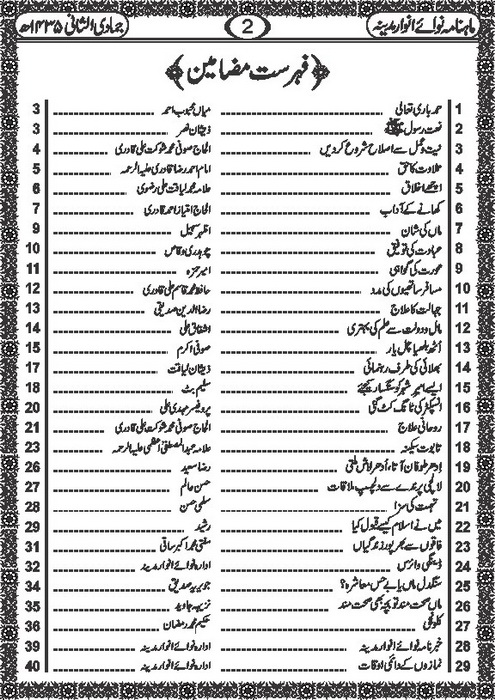 ماہنامہ نوائے انوار مدینہ 2 جمادی الثانی ۱۴۳۵ھ
﴿فہرست مضامین﴾
1 حمد باری تعالیٰ میاں محبوب احمد 3
2 نعت رسول ﷺ ذیشان نصر 3
3 نیت و عمل سے اصلاح شروع کردیں الحاج صوفی محمد شوکت علی قادری 4
4 تلاوت کا حق امام احمد رضا قادری علیہ الرحمہ 5
5 اچھے اخلاق علامہ محمد لیاقت علی رضوی 6
6 کھانے کے آداب الحاج امتیاز احمد قادری 7
7 ماں کی شان اظہر سہیل 9
8 عبادت کی توفیق چوہدری وقاص 10
9 عورت کی گواہی امیر حمزہ 11
10 مسافر ساتھیوں کی مدد حافظ محمد قاسم علی قادری 12
11 جہالت کا علاج رضا الدین صدیقی 13
12 مال و دولت سے علم کی بہتری اشفاق علی 14
13 اُٹھ بلھیا چل یار صوفی اکرم 15
14 بھلائی کی طرف رہنمائی ذیشان لیاقت 17
15 ایسے امیر شہر کو سنگسار کیجئے سلیم بٹ 18
16 انسپکٹر کی ٹانگ کٹ گئی پروفیسر مہدی علی 20
17 روحانی علاج الحاج صوفی محمد شوکت علی قادری 21
18 تابوت سکینہ علامہ عبدالمصطفیٰ اعظمی علیہ الرحمہ 23
19 اِدھر طوفان آتا، اُدھر لاش ملتی رضا سعید 26
20 لالچی پرندے سے دلچسپ ملاقات حسن عالم 27
21 تہمت کی سزا سلمیٰ حسن 28
22 میں نے اسلام کیسے قبول کیا رشید 29
23 فاقوں سے بھرپور زندگیاں مفتی محمد اکبر ساقی 31
24 ڈینگی وائرس ادارہ نوائے انوار مدینہ 32
25 سنگدل ماں یا بے حس معاشرہ؟ جویریہ صدیق 34
26 ماں صحت مند تو بچہ بھی صحت مند نزیہہ جاوید 35
27 کلونجی حکیم محمد رمضان 36
28 خبرنامہ نوائے انوار مدینہ ادارہ نوائے انوار مدینہ 39
29 نمازوں کے دائمی اوقات ادارہ نوائے انوار مدینہ 40